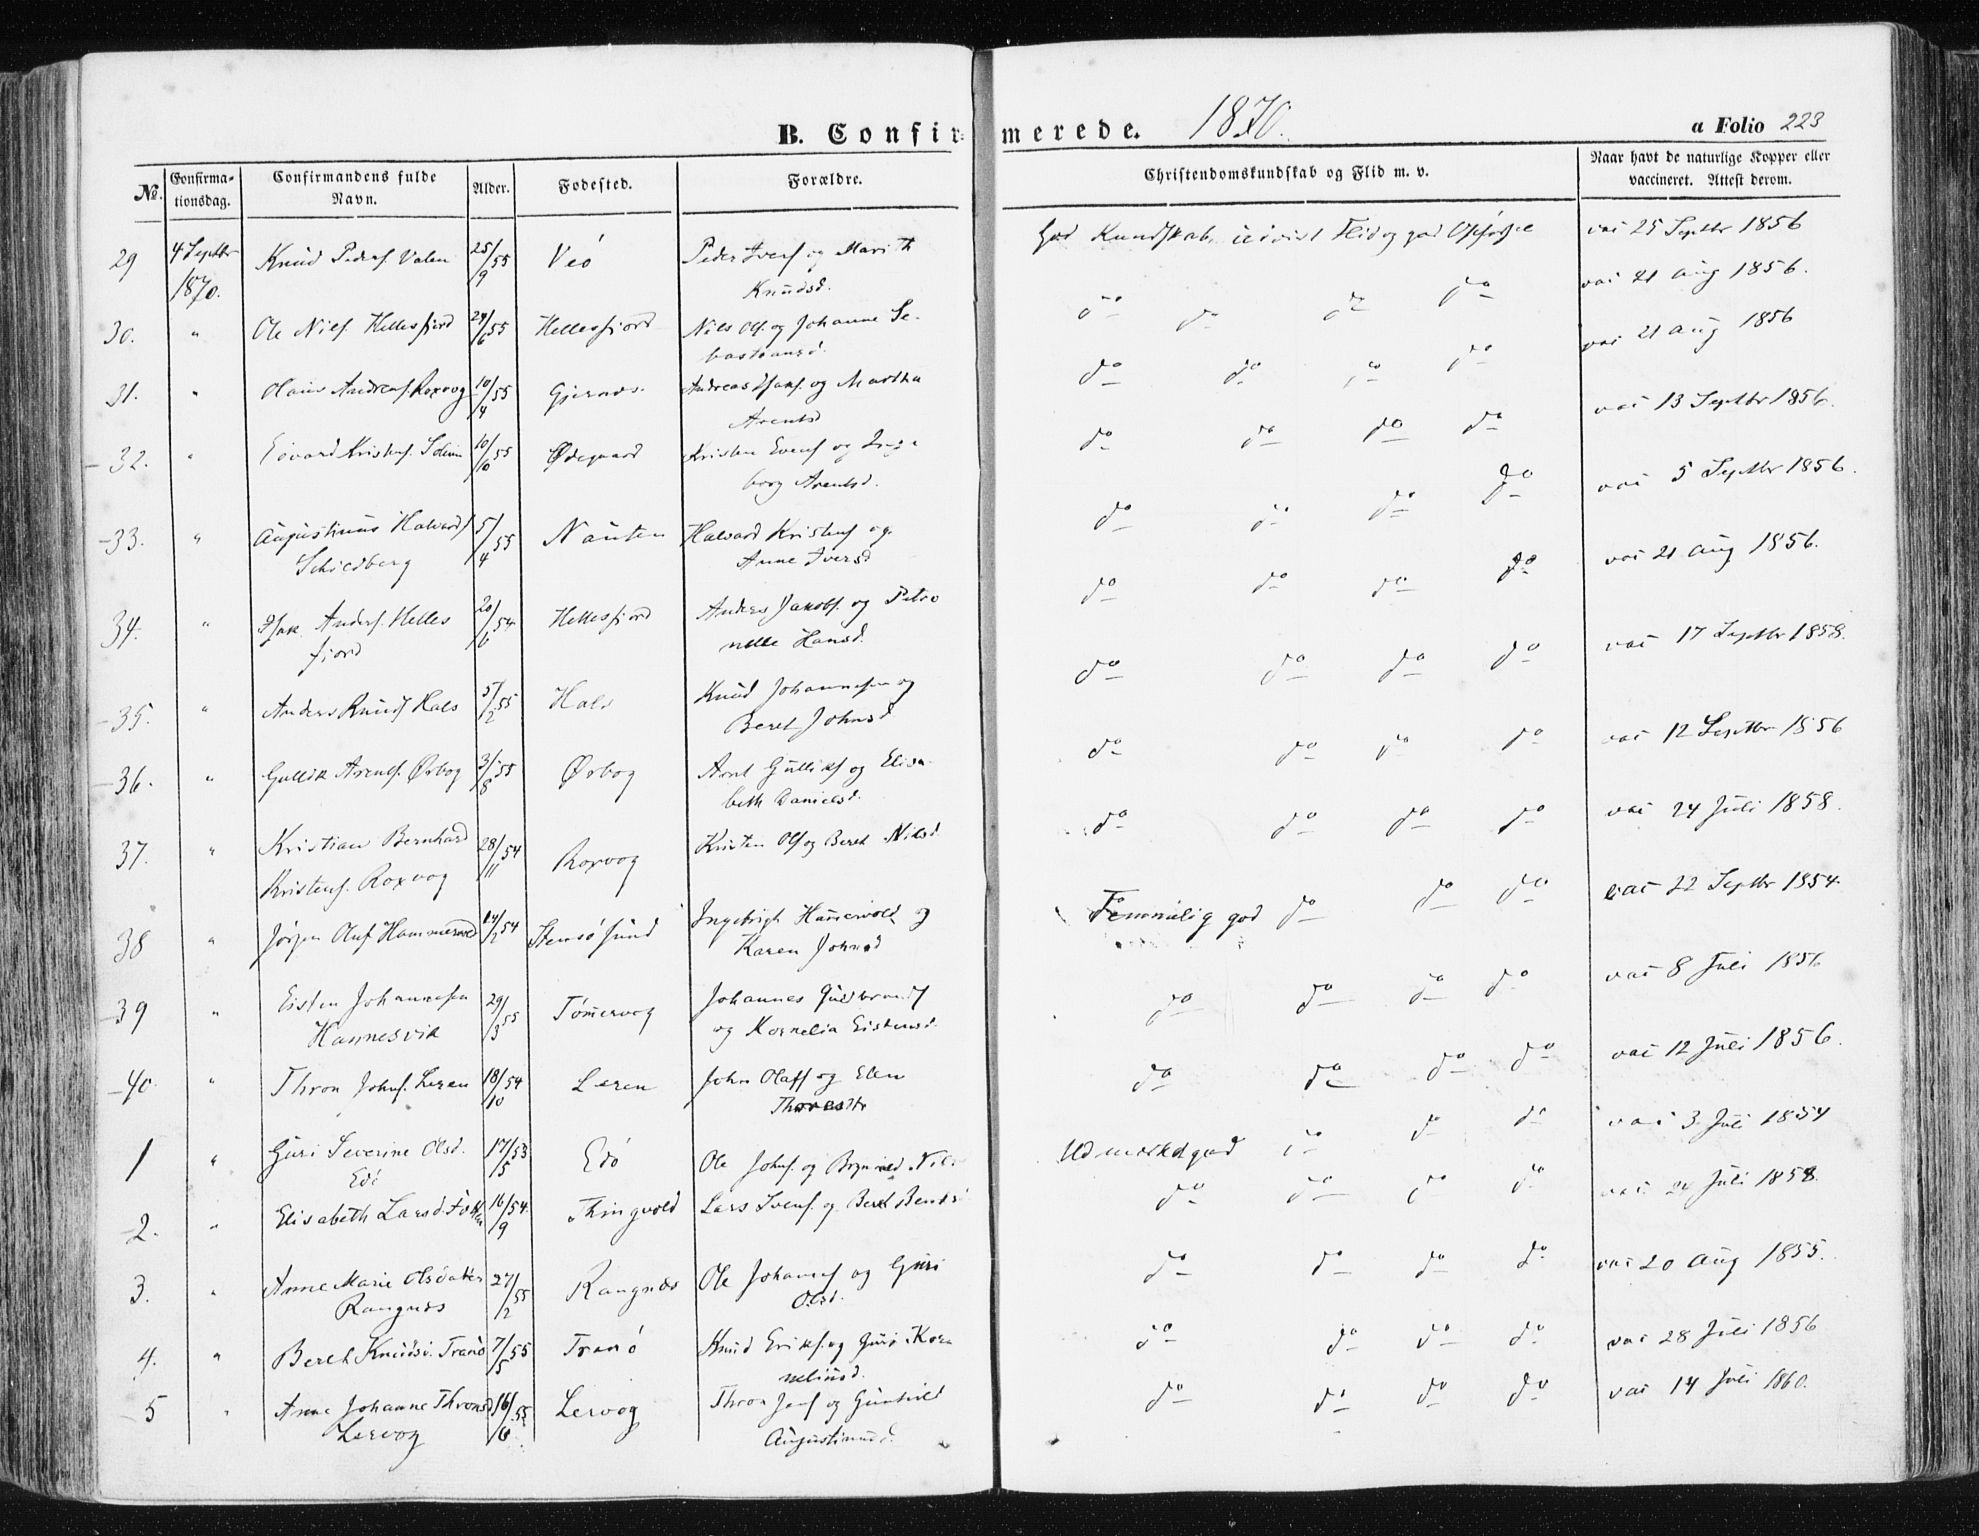 B. Confirmerede. 1870. a Folio 223
No. Confirma-tionsdag. Confirmandens fulde Navn. Alder. Fødested. Forældre. Christendomskundskab og Flid m. v. Naar havt de naturlige Kopper eller vaccineret. Attest derom.
29 4 Septbr 1870. Knud Peders. Valen 25/9 55 Veö Peder Ivers og Marith Knudsd. God Kundskab, udvist Flid og god Opførsel vac 25 Septbr 1856
30. " Ole Nils. Hellesfjord 24/6 55 Hellesfjord Nils Ols. og Johanne Sebastiansd. do do do do vac 21 Aug 1856.
31. " Andreas. Roxvog 10/4 55 Gjernæs Andreas Isaks. og Martha Arentsd do do do do vac 21 Aug 1856
32. " Edvard Kristens. 10/10 55 Ødegaard Kristen Evens og Ingeborg Arentsd. do do do do vac 13 Septbr 1856.
33. " Augustinus Halvards Schiedberg 5/4 55 Nauten Halvard Kristens og Anne Iversd do do do do vac 5 Septbr 1856.
34. " Isak Anders. Hellesfjord 20/6 54 Hellesfjord Anders Jakobs. og Petronelle Hansd. do do do do vac 21 Aug 1856.
35. " Anders Knuds Hals 5/2 55 Hals Knud Johannesen og Beret Johnsd do do do do vac 17 Septbr 1858.
36. " Gullik Arents. Ørbog 3/8 55 Ørbog Arnt Gulliks og Elisabeth Danielsd. do do do do vac 12 Septbr 1856
37. " Kristian Bernhard Kristens. Roxvog 28/11 54 Roxvog Kristen Ols og Beret Nilsd do do do do vac 24 Juli 1858.
38 " Jörgen Oluf Hammervold 14/2 54 Stensösund Ingebrigt Hammervold og Karen Johnsd Temmelig god do do do vac 22 Septbr 1854.
39 " Eisten Johannesen Hannesvik 29/3 55 Tømmervog Johannes Gudbrands og Kornelia Eistensd. do do do do vac 8 Juli 1856
40 " Thron Johns. Leren 18/10 54 Leren John Olaff og Elen do do do do vac 12 Juli 1856.
1 " Guri Severine Olsd. Edö 17/5 53 Edö Ole Johns. og Udmerket god do do do vac 3 Juli 1854
2. " Elisabeth Larsd. 16/9 54 Thingvold Lars Ivers. og Beret do do do do vac 24 Juli 1858.
3. " Anne Marie Olsdatter Rangnæs 27/2 55 Rangnæs Ole Johans og Guri Olsd. do do do do vac 20 Aug 1855.
4. " Bereth Knudsd. Tranö 7/5 55 Tranö Knud Eriks. og Guro Korneliusd. do do do do vac 28 Juli 1856
5 " Anne Johanne Thronsd Lervog 16/6 55 Lervog Thron Jens og Gunhild Augustinusd. do do do do vac 14 Juli 1860.